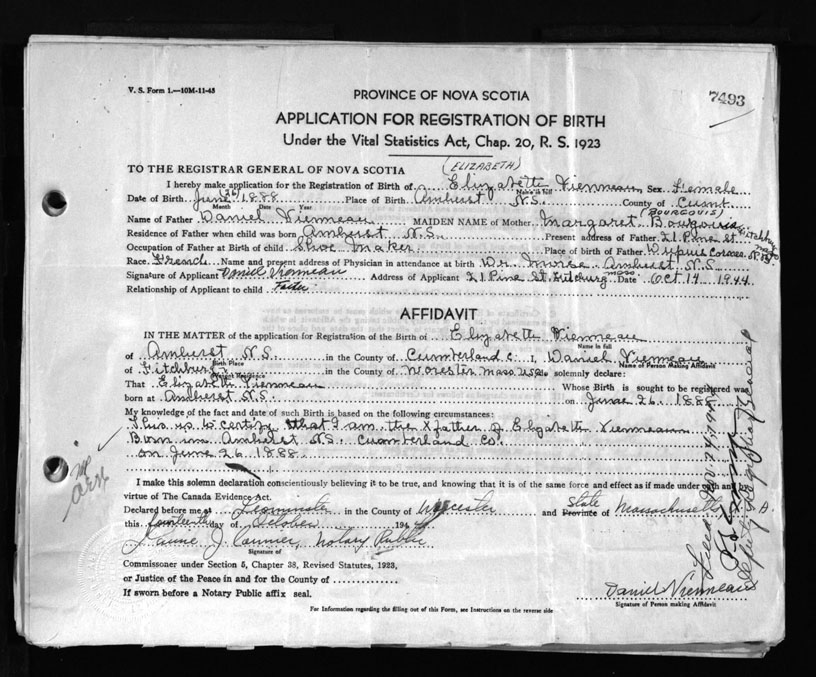 V. S. Form 1.—10M-11-45
7493
PROVINCE OF NOVA SCOTIA
APPLICATION FOR REGISTRATION OF BIRTH
Under the Vital Statistics Act, Chap. 20, R. S. 1923
TO THE REGISTRAR GENERAL OF NOVA SCOTIA
(ELIZABETH)
I hereby make application for the Registration of Birth of Elizabeth Vienneau Sex Female
Name in full
Date of Birth June (26) 1888 Place of Birth Amherst N.S. County of
Month Date Year
(BOURGOUIS)
Name of Father Daniel Vienneau MAIDEN NAME of Mother Margaret
Residence of Father when child was born Amherst N.S. Present address of Father 21 Pine St
Occupation of Father at Birth of child Shoe Maker Place of birth of Father
Race French Name and present address of Physician in attendance at birth Dr. Morse Amherst N.S.
Signature of Applicant Daniel Vienneau Address of Applicant 21 Pine St. Fitchburg Mass. Date Oct 14 1944
Relationship of Applicant to child Father
AFFIDAVIT
IN THE MATTER of the application for Registration of the Birth of Elizabeth Vienneau
Name in full
of Amherst N.S. in the County of Cumberland c. I, Daniel Vienneau
Birth Place Name of Person Making Affidavit
of Fitchburg in the County of Worester Mass. USA. do solemnly declare:
Present Residence
That Elizabeth Vienneau Whose Birth is sought to be registered was
born at Amherst N.S. on June 26. 1888
My knowledge of the fact and date of such Birth is based on the following circumstances:
This is to certify that I am the father of Elizabeth Vienneau
Born in Amherst N.S. Cumberland Co.
on June 26 1888
I make this solemn declaration conscientiously believing it to be true, and knowing that it is of the same force and effect as if made under oath and by
virtue of The Canada Evidence Act.
Declared before me at Leominster in the County of Worcester and State Province of Massachusetts
this fourteenth day of October 194
Notary Public
Signature of
Commissioner under Section 5, Chapter 38, Revised Statutes, 1923,
or Justice of the Peace in and for the County of
If sworn before a Notary Public affix seal.
Daniel Vienneau
Signature of Person making Affidavit
For Information regarding the filling out of this Form, see Instructions on the reverse side
Deputy Registrar General